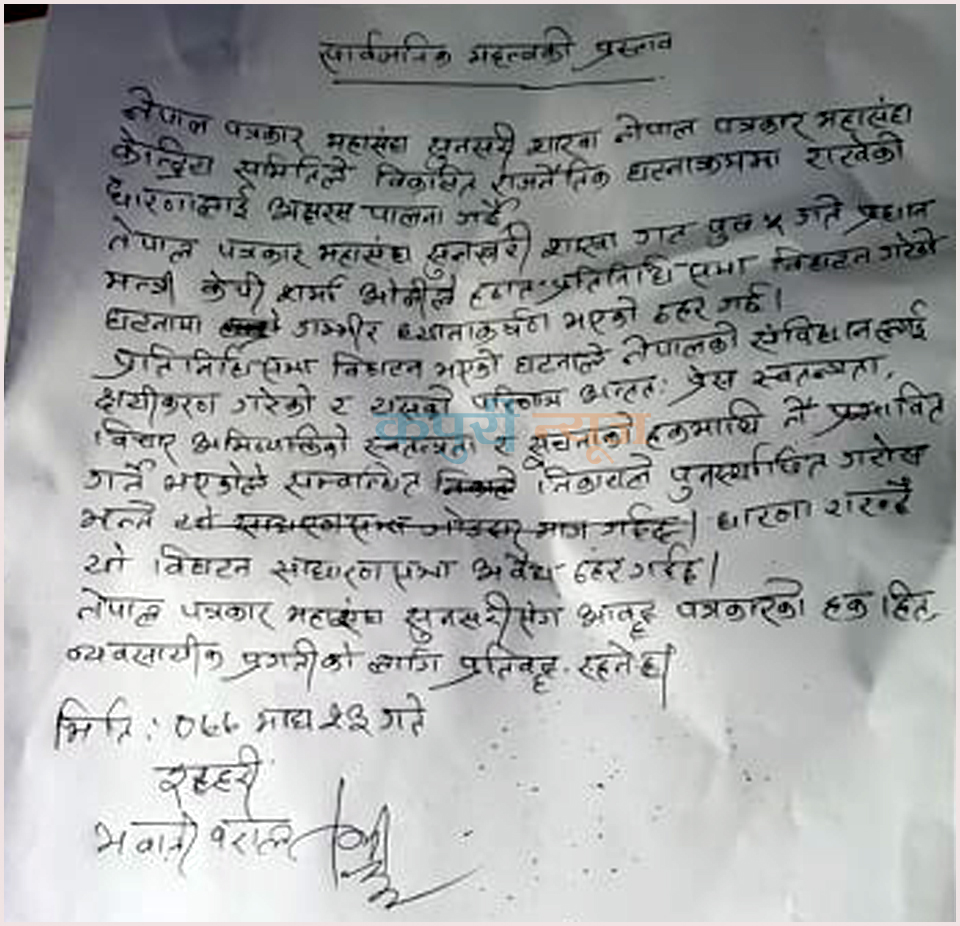 सार्वजनिक महत्वको प्रस्ताव
नेपाल पत्रकार महासंघ सुनसरी शाखा नेपाल पत्रकार महासंघ
केन्द्रिय समितिले विकसित राजनैतिक घटनाक्रममा राखेको
धारणालाई अक्षरस पालना गर्दै
नेपाल पत्रकार महासंघ सुनसरी शाखा गत पुष ५ गते प्रधान
मन्त्री केपी शर्मा ओलीले प्रतिनिधि सभा विघटन गरेको
घटनामा गम्भीर ध्यानाकर्षण भएको ठहर गर्छ।
प्रतिनिधि सभा विघटन भएको घटनाले नेपालको संविधानलाई
क्षयीकरण गरेको र यसको परिणाम अन्ततः प्रेस स्वतन्त्रता,
विचार अभिव्यक्तिको स्वतन्त्रता र सूचनाको हकमाथि नै प्रभावित
गर्ने भएकोले सम्बन्धित निकायले पुनर्स्थापित गरोस
भन्ने धारणा राख्दै
यो विघटन साधारण सभा अवैध ठहर गर्दछ।
नेपाल पत्रकार महासंघ सुनसरीसंग आवद्ध पत्रकारको हक हित,
व्यवसायीक प्रगतीको लागि प्रतिवद्ध रहनेछ।
मिति : ०७७ माघ २३ गते
भवानी बराल
कपुरी न्यूज